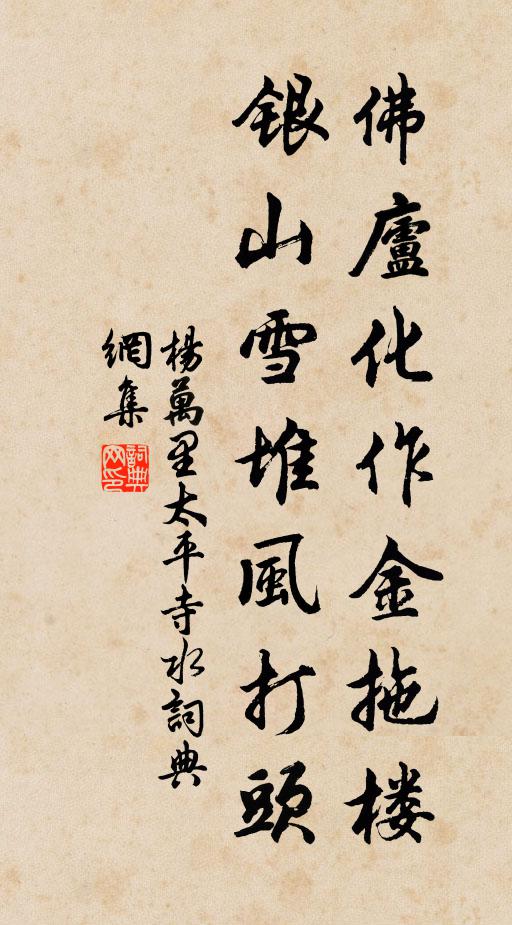 佛廬化作金拖楼
銀山雪堆風打頭
楊萬里太平寺水詞典
網集
詞典網印